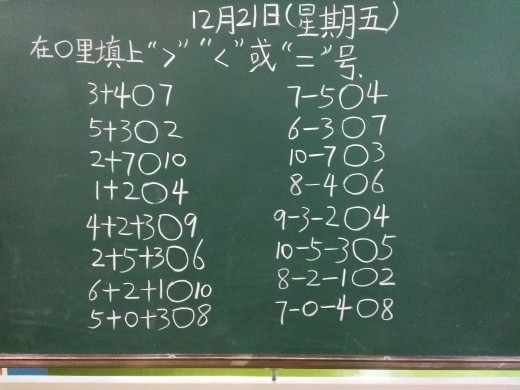 12月21日(星期五)
在○里填上">""<"或"="号.
3+4○7
5+3○2
2+7○10
1+2○4
4+2+3○9
2+5+3○6
6+2+1○10
5+0+3○8
7-5○4
6-3○7
10-7○3
8-4○6
9-3-2○4
10-5-3○5
8-2-1○2
7-0-4○8